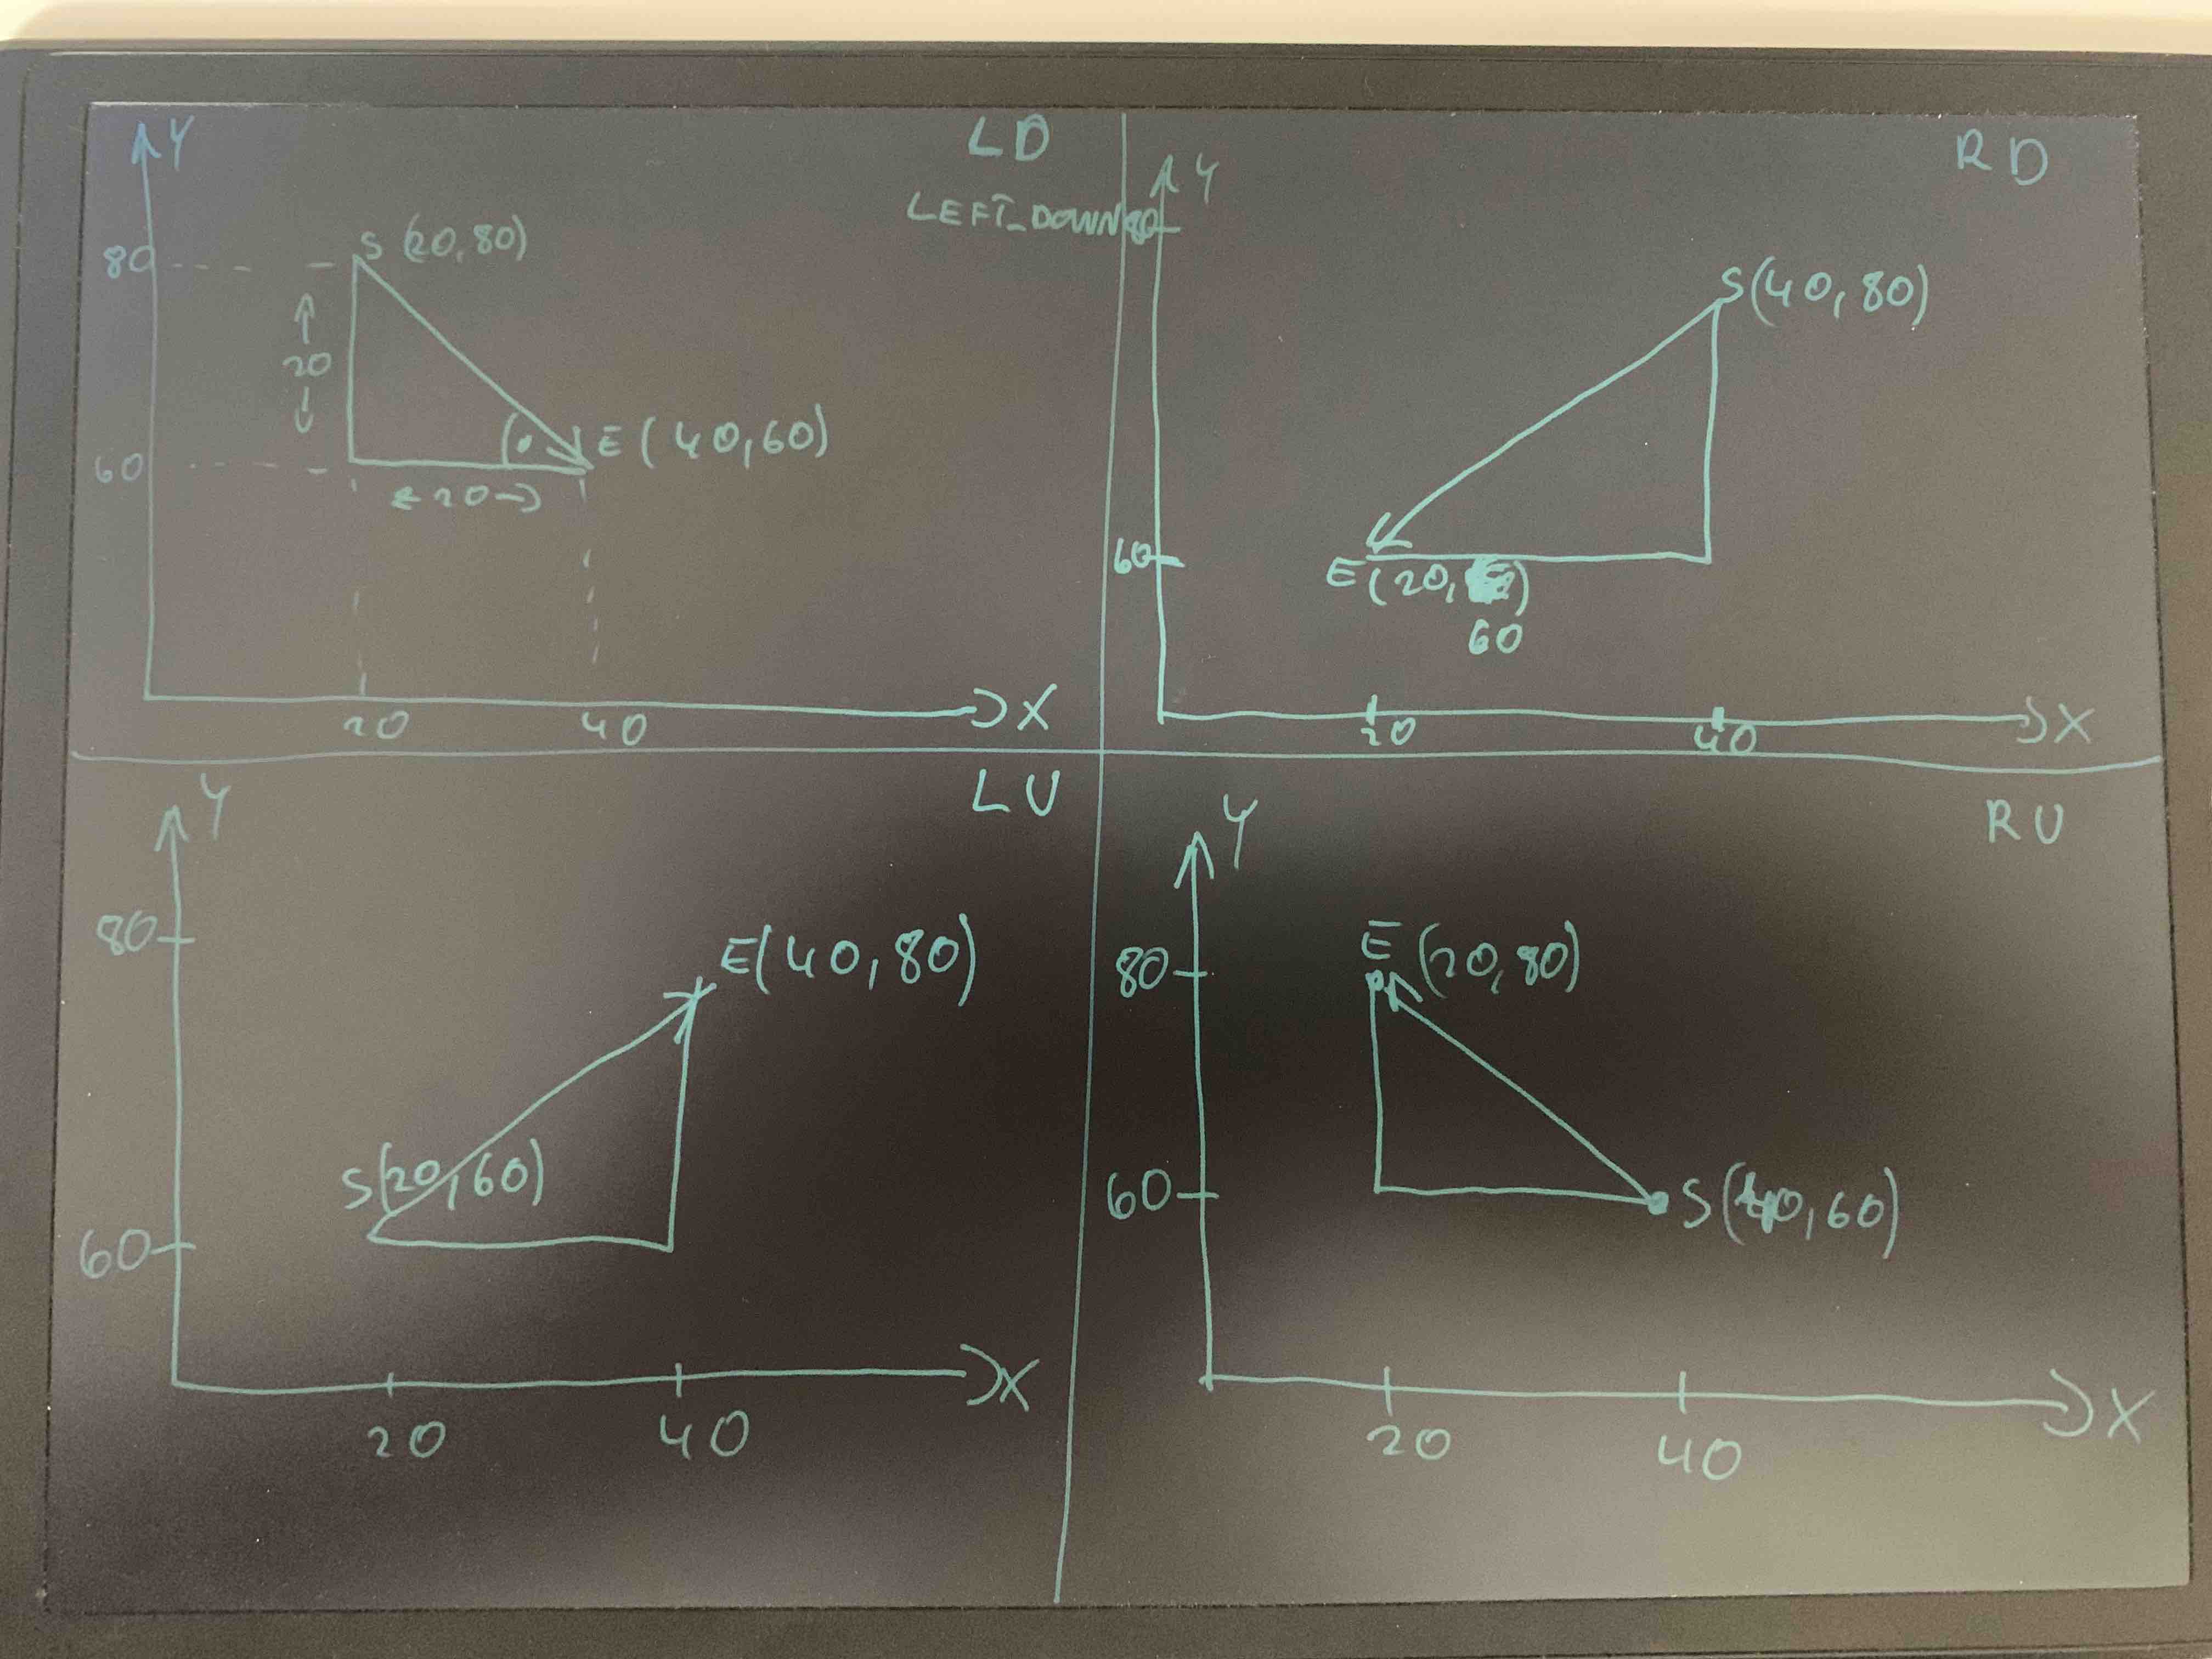 Y
LD
LEFT_DOWN
S (20,80)
80
20
E (40,60)
60
20
20
40
X
Y
RD
80
S(40,80)
60
E(20,
60
20
40
X
Y
LU
80
E(40,80)
S(20,60)
60
20
40
X
Y
RU
E (20,80)
80
60
S(40,60)
20
40
X